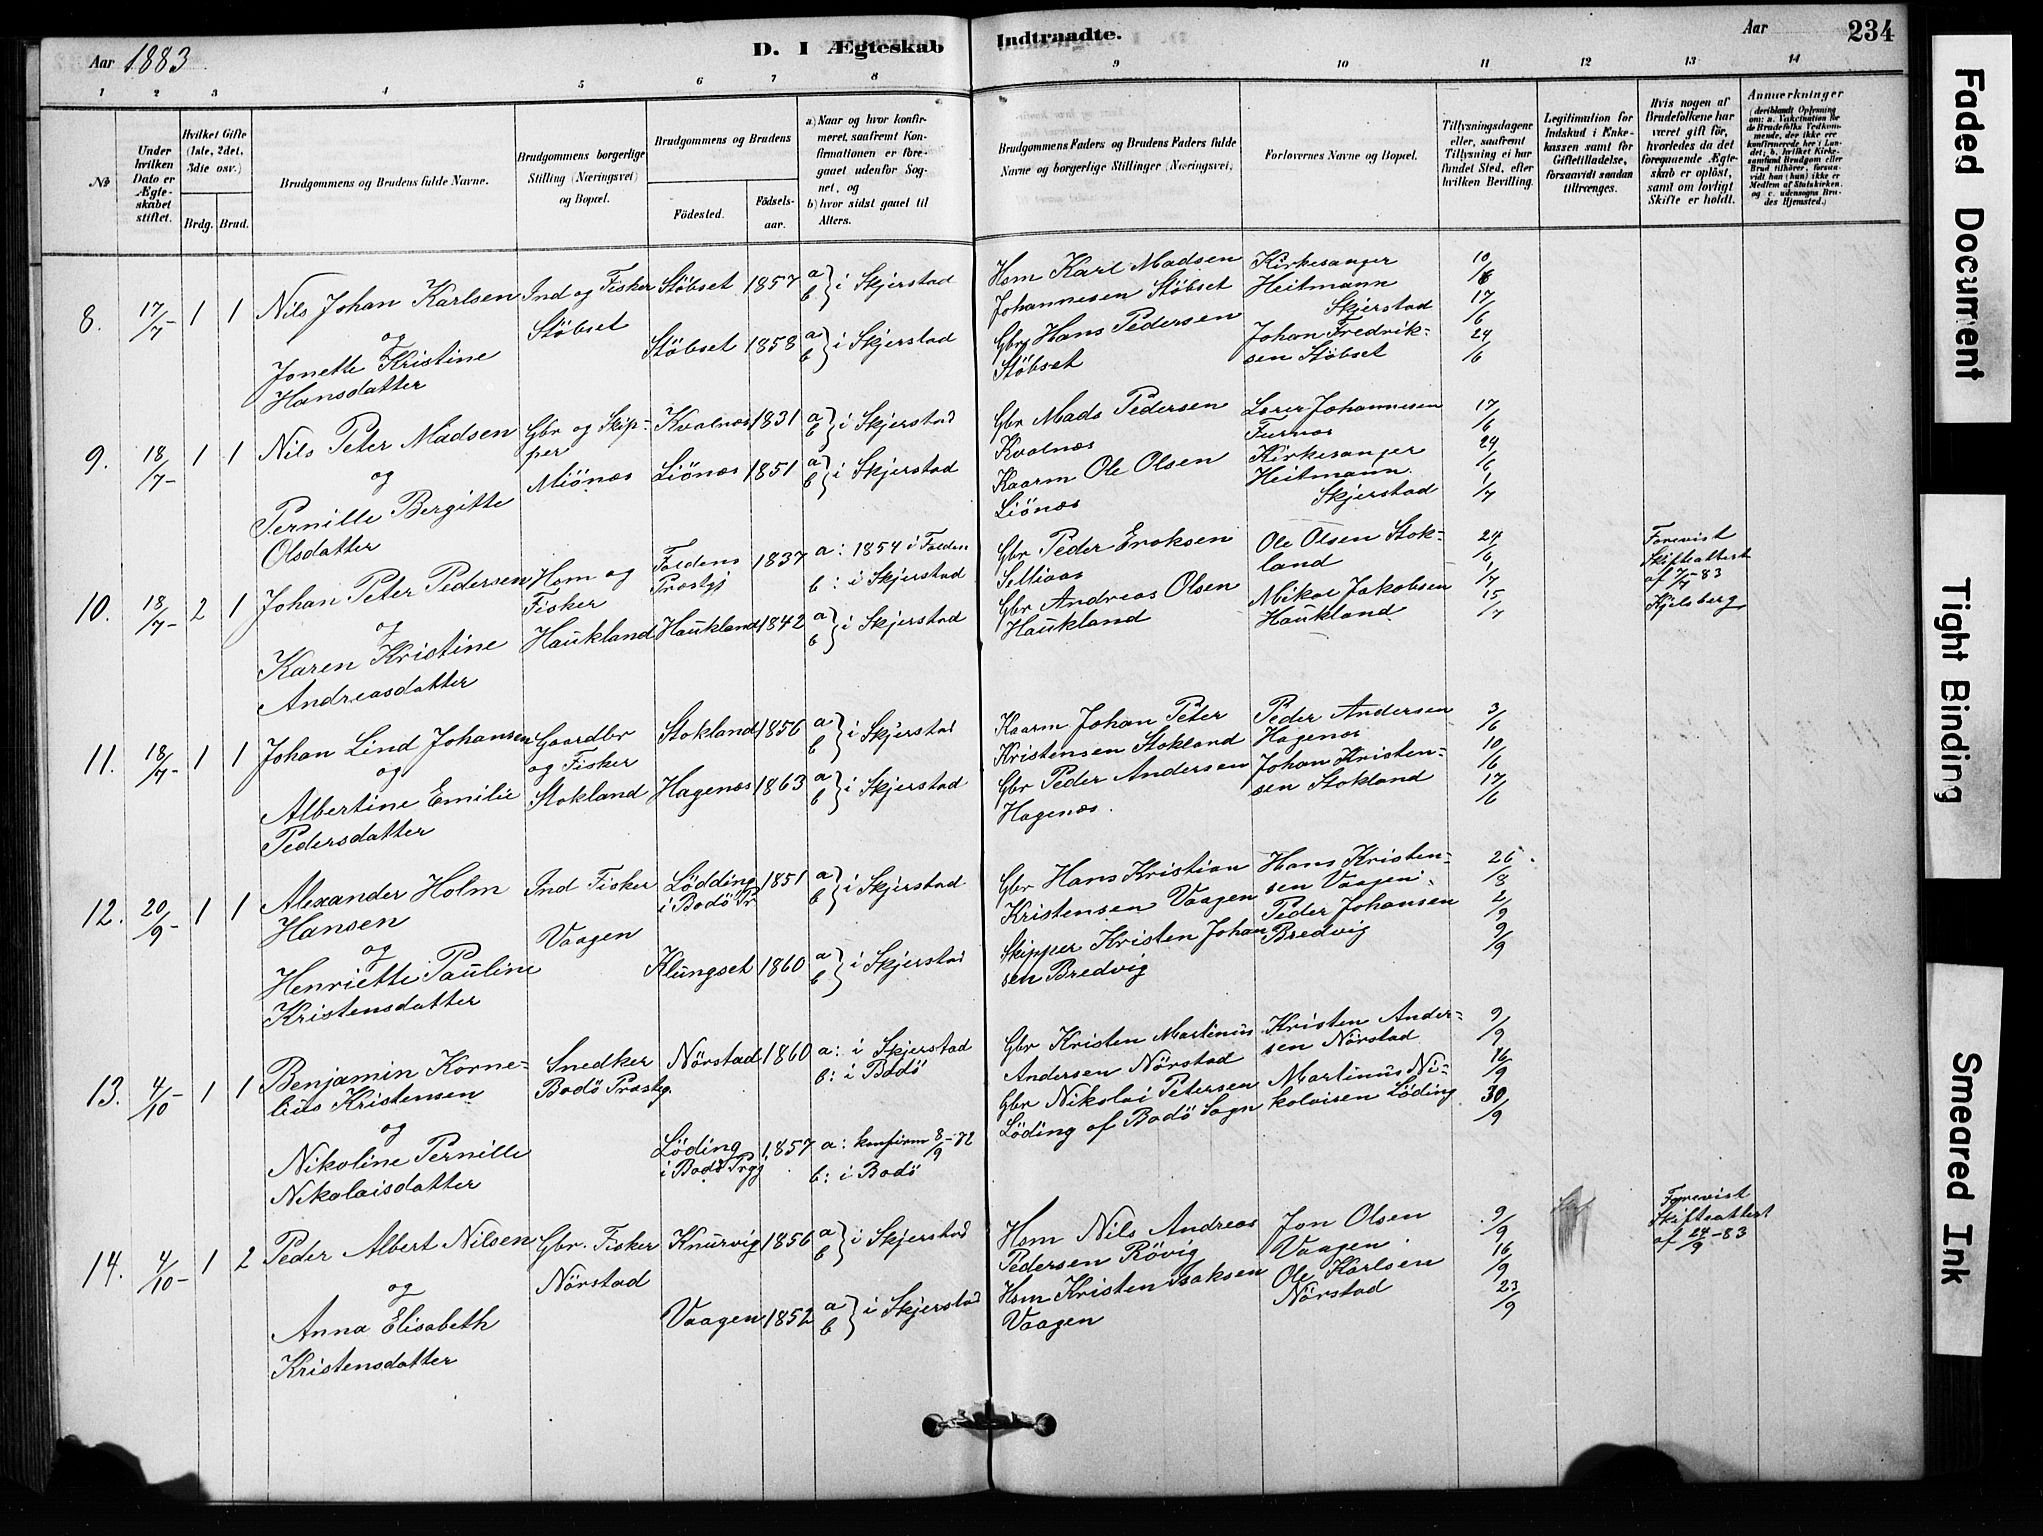 Aar 1883
D. I Ægteskab Indtraadte.
Aar
234
1 2 3 4 5 6 7 8 9 10 11 12 13 14
No
Under hvilken Dato er Ægteskabet stiftet.
Hvilket Gifte (1ste, 2det, 3die osv.)
Brdg. Brud.
Brudgommens og Brudens fulde Navne.
Brudgommens borgerlige Stilling (Næringsvei) og Bopæl.
Brudgommens og Brudens
Fødested. Fødselsaar.
a) Naar og hvor konfirmeret, saafremt Konfirmationen er foregaaet udenfor Sognet, og
b) hvor sidst gaaet til Alters.
Brudgommens Faders og Brudens Faders fulde Navne og borgerlige Stillinger (Næringsvei).
Forlovernes Navne og Bopæl.
Tillysningsdagene eller, saafremt Tillysning ei har fundet Sted, efter hvilken Bevilling.
Legitimation for Indskud i Enkekassen samt for Giftetilladelse, forsaavidt saadan tiltrænges.
Hvis nogen af Brudefolkene har været gift før, hvorledes da det foregaaende Ægteskab er opløst, samt om lovligt Skifte er holdt.
Anmærkninger (deriblandt Oplysning om: a. Vakcination for de Brudefolks Vedkommende, der ikke ere konfirmerede her i Landet; b. hvilket Kirkesamfund Brudgom eller Brud tilhører, forsaavidt han (hun) ikke er Medlem af Statskirken, og c. udensogns Brudes Hjemsted.)
8. 17/7- 1 1
Nils Johan Karlsen
og
Jonette Kristine
Hansdatter
Ind og Fisker
Støbset
Støbset 1857 a b } i Skjerstad
Støbset 1858 a b } i Skjerstad
Hsm Karl Madsen
Johannesen Støbset
Gbr Hans Pedersen
Støbset
Kirkesanger
Heitmann
Skjerstad
Johan Fredrik-
sen Støbset
10/6
17/6
24/6
9. 18/7- 1 1
Nils Peter Madsen
og
Pernille Bergitte
Olsdatter
Gbr og Skip-
per
Miönæs
Kvalnæs 1831 a b } i Skjerstad
Liönæs 1851 a b } i Skjerstad
Gbr Mads Pedersen
Kvalnæs
Kaarm Ole Olsen
Liönæs
Johannesen
Furnæs
Kirkesanger
Heitmann
Skjerstad
17/6
24/6
1/7
10. 18/7- 2 1
Johan Peter Pedersen
og
Karen Kristine
Andreasdatter
Hsm og
Fisker
Haukland
Foldens
Præstgj 1837
a: 1854 i Folden
b: i Skjerstad
Haukland 1842 a b } i Skjerstad
Gbr Peder
Gbr Andreas Olsen
Haukland
Ole Olsen Stok-
land
Mikal Jakobsen
Haukland
24/6
1/7
15/7
Forevist
Skifteattest
af 7/5 83
Kjelsberg
11. 18/7- 1 1
Johan Lind Johansen
og
Albertine Emilie
Pedersdatter
Gaardbr
og Fisker
Stokland
Stokland 1856 a b } i Skjerstad
Hagenæs 1863 a b } i Skjerstad
Kaarm Johan Peter
Kristensen Stokland
Gbr Peder Andersen
Hagenæs.
Peder Andersen
Hagenæs
Johan Kristen-
sen Stokland
3/6
10/6
17/6
12. 20/9- 1 1
Alexander Holm
Hansen
og
Henriette Pauline
Kristensdatter
Ind Fisker
Vaagen
Lödding
i Bodö Pr 1851 a b } i Skjerstad
Klungset 1860 a b } i Skjerstad
Gbr Hans Kristian
Kristensen Vaagen
Skipper Kristen Johan
sen Bredvig
Hans Kristen-
sen Vaagen
Peder Johansen
Bredvig
26/8
2/9
9/9
13. 4/10- 1 1
Benjamin Korne-
lius Kristensen
og
Nikoline Pernille
Nikolaisdatter
Snedker
Bodö Præstg.
Nörstad 1860 a: i Skjerstad
b: i Bodö
Löding
i Bodö Prgj 1857 a: konfirm 8/9-72
b: i Bodö
Gbr Kristen Martinus
Andersen Nörstad
Gbr Nikolai Petersen
Löding af Bodö Sogn
Kristen Ander-
sen Nörstad
Martinus Ni-
kolaisen Löding
9/9
16/9
30/9
14. 4/10- 1 2
Peder Albert Nilsen
og
Anna Elisabeth
Kristensdatter
Gbr. Fisker
Nörstad
Knurvig 1856 a b } i Skjerstad
Vaagen 1852 a b } i Skjerstad
Hsm Nils Andreas
Pedersen Rövig
Hsm Kristen Isaksen
Vaagen
Jon Olsen
Vaagen
Ole Karlsen
Nörstad
9/9
16/9
23/9
Forevist
Skifteattest
af 24/9-83
Faded Document
Tight Binding
Smeared Ink